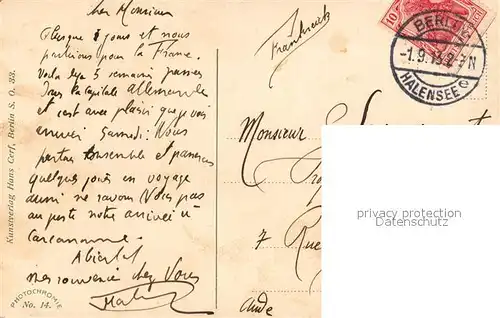 cher Monsieur
Quelques jours et nous
partirons pour la France.
Voila les 5 semaines passées
Dans la Capitale Allemande
et c'est avec plaisir que je vois
arriver Samedi: Nous
ensemble et
quelques jours en voyage
aussi ne savons Vous pas
au juste notre arrivée à
Carcassonne.
A Bientot
mes souvenirs chez Vous
Frankreich
10
BERLIN
-1.9.13.2-3N
HALENSEE
Monsieur
7 Rue
Aude
privacy protection
Datenschutz
Kunstverlag Hans Cerf, Berlin S. O. 33.
PHOTOCHROMIE
No. 14.